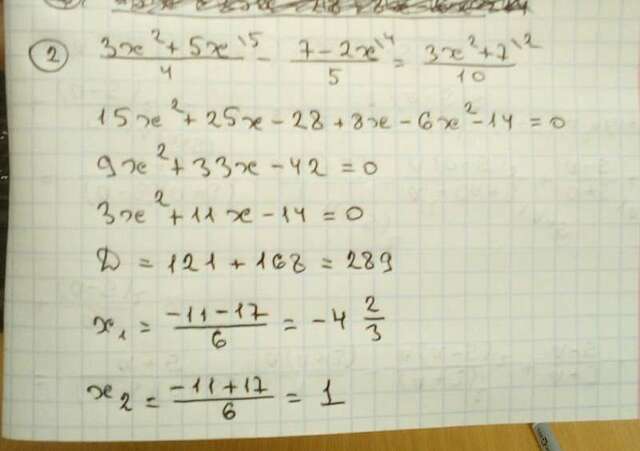 ② (3x² + 5x^\5)/4 - (7 - 2x^\4)/5 = (3x² + 7^\2)/10
15x² + 25x - 28 + 8x - 6x² - 14 = 0
9x² + 33x - 42 = 0
3x² + 11x - 14 = 0
D = 121 + 168 = 289
x₁ = (-11 - 17)/6 = -4 2/3
x₂ = (-11 + 17)/6 = 1